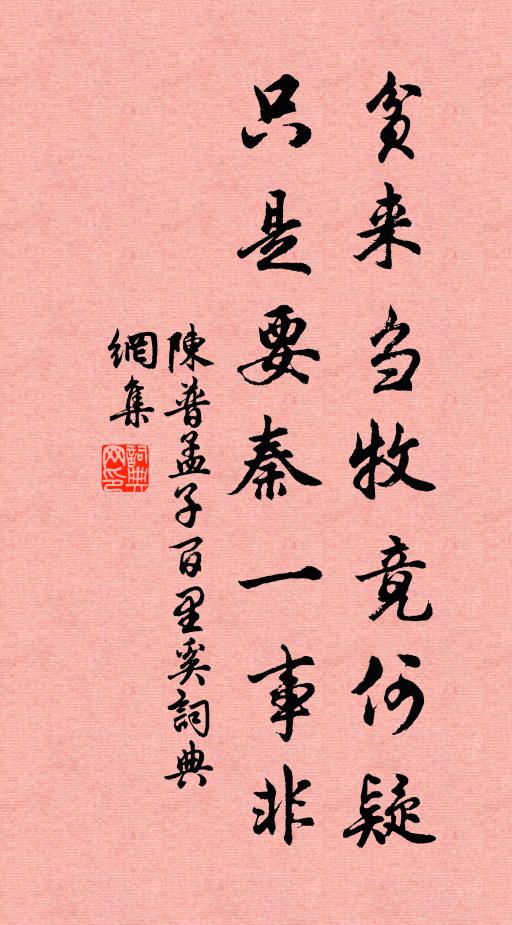 貧来刍牧竟何疑
只是要秦一事非
陳普孟子百里奚詞典
網集
詞典
网印